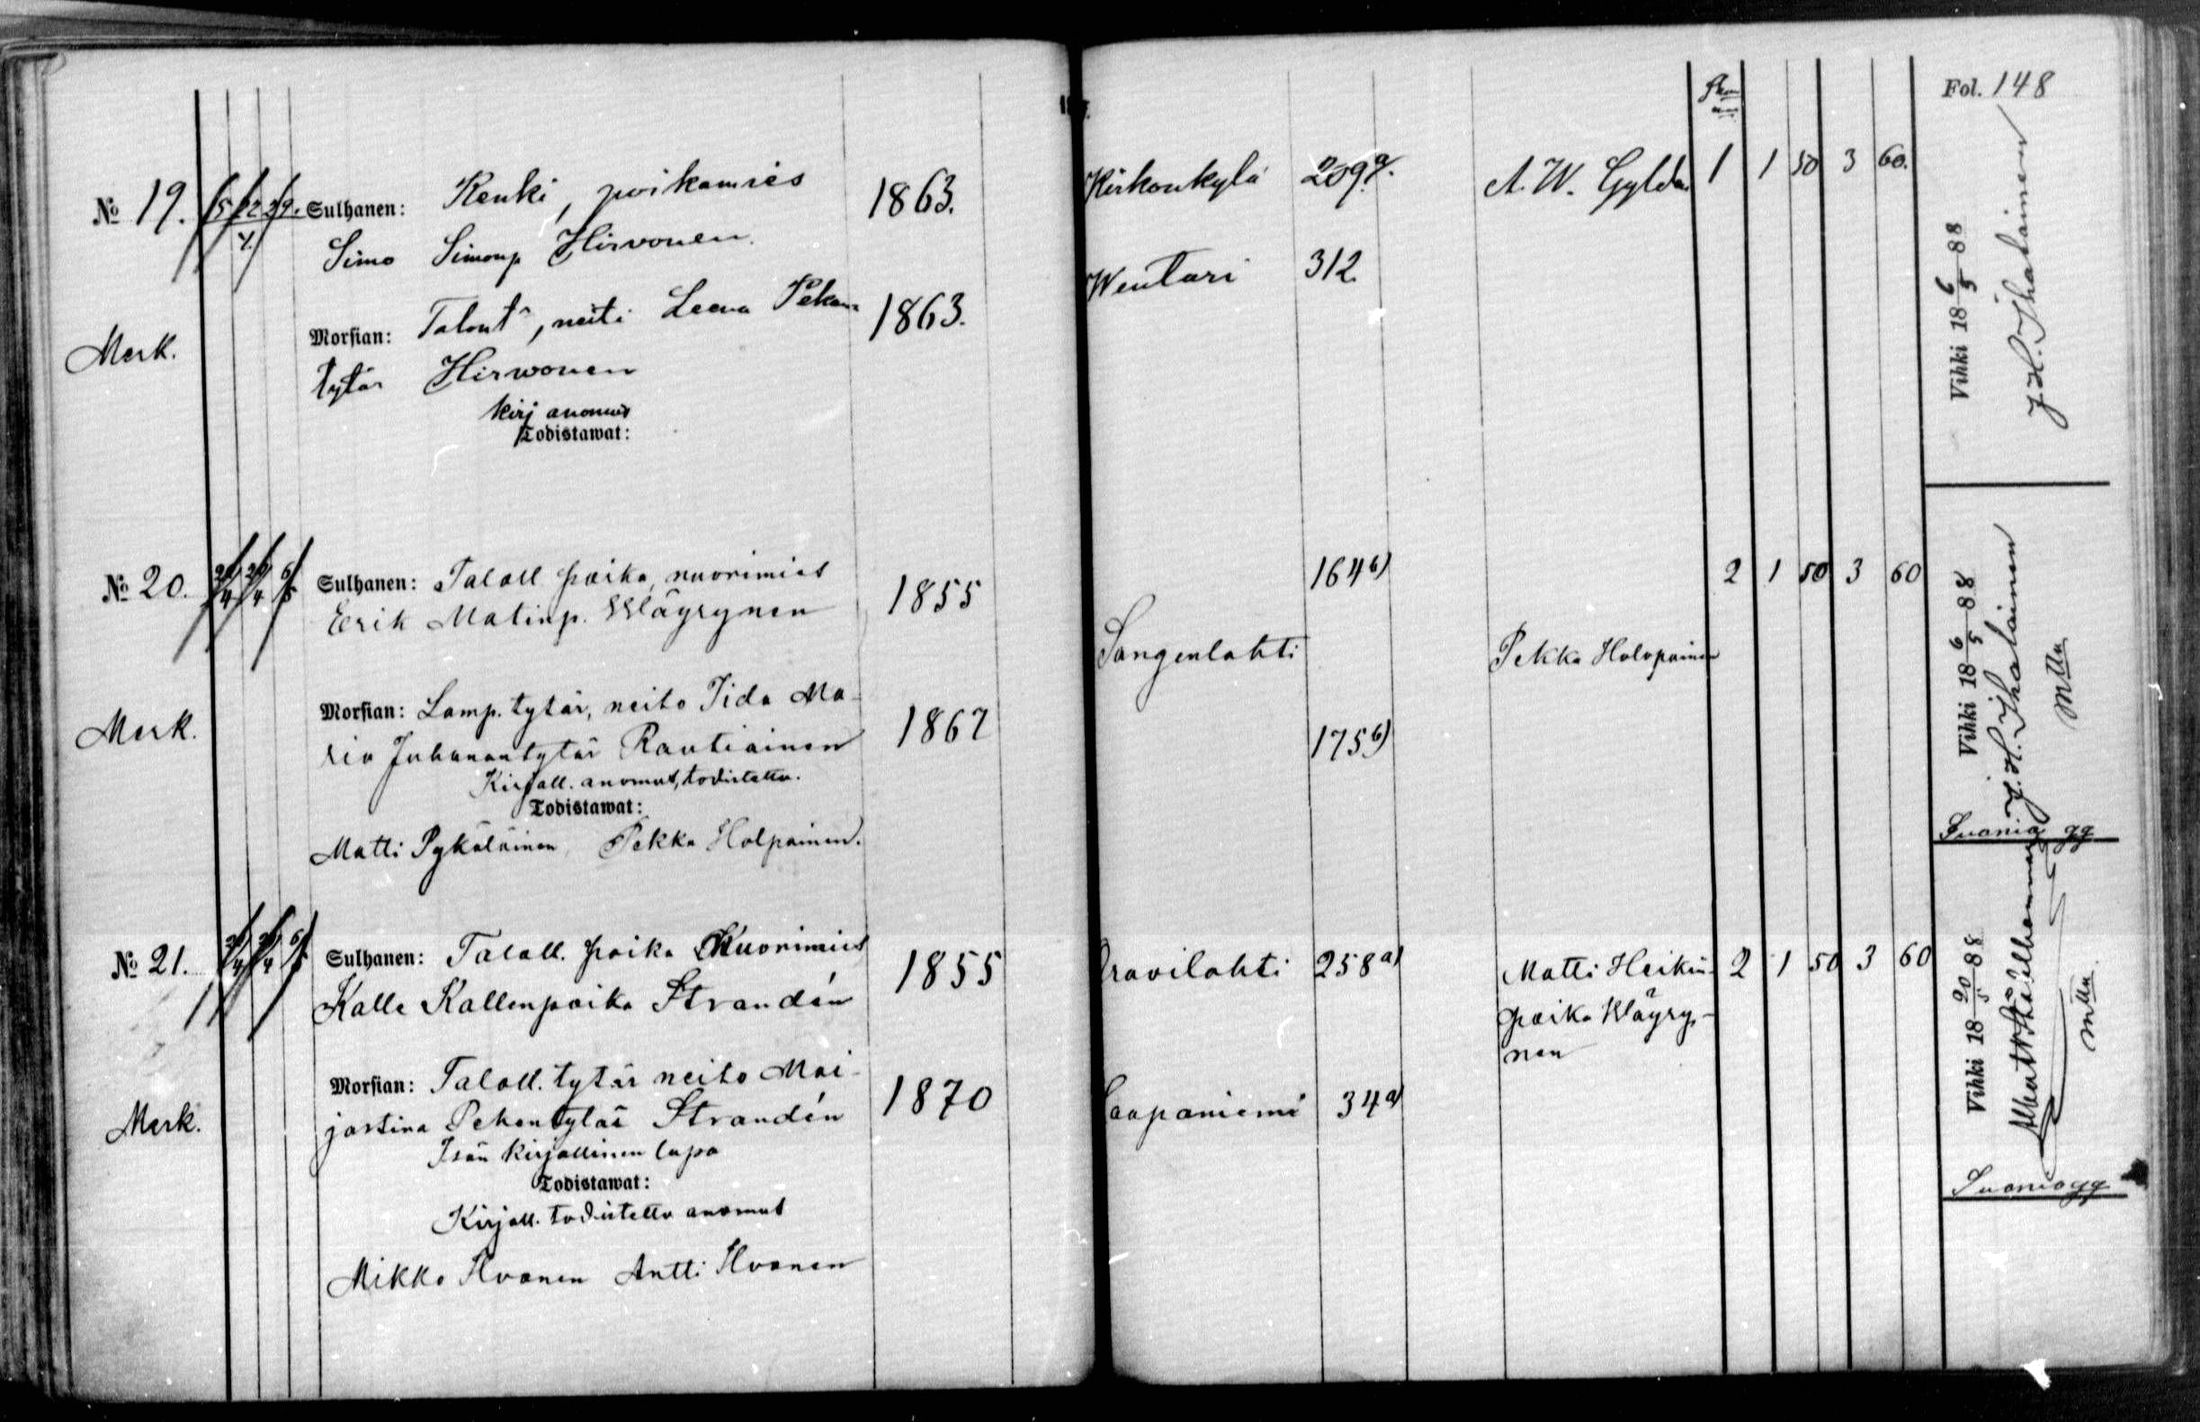 Fol. 148
№ 19. 15 22 29. Sulhanen: Renki, poikamies 1863. Kirkonkylä 209 a. A. W. Gyldén 1 1 50 3 60.
4.
Simo Simonp Hirvonen.
Wentari 312.
Morsian: Talont, neiti Leena Pekan- 1863.
Merk.
tytär Hirwonen
kirj anomus
Todistawat:
Vihki 18 6/5 88
J. H. Ihalainen
№ 20. 22/4 29/4 6/5 Sulhanen: Taloll poika, nuorimies 1855 164 b) 2 1 50 3 60
Erik Matinp. Wäyrynen
Sangenlahti Pekka Holopainen
Morsian: Lamp. tytär, neito Iida Ma- 1867 175 b)
Merk.
ria Juhanantytär Rautiainen
Kirjall. anomus, todistettu.
Todistawat:
Matti Pykäläinen, Pekka Holpainen.
Vihki 18 6/5 88
J. H. Ihalainen
№ 21. 22/4 29/4 6/5 Sulhanen: Taloll. poika Nuorimies 1855 Oravilahti 258 a) Matti Heikin- 2 1 50 3 60
Kalle Kallenpoika Strandén poika Wäyry-
nen
Morsian: Taloll. tytär neito Mai- 1870 Saapaniemi 34 a)
Merk.
jastina Pekantytär Strandén
Isän kirjallinen lupa
Todistawat:
Kirjall. todistettu anomus
Mikko Ilvonen Antti Ilvonen
Vihki 18 20/5 88